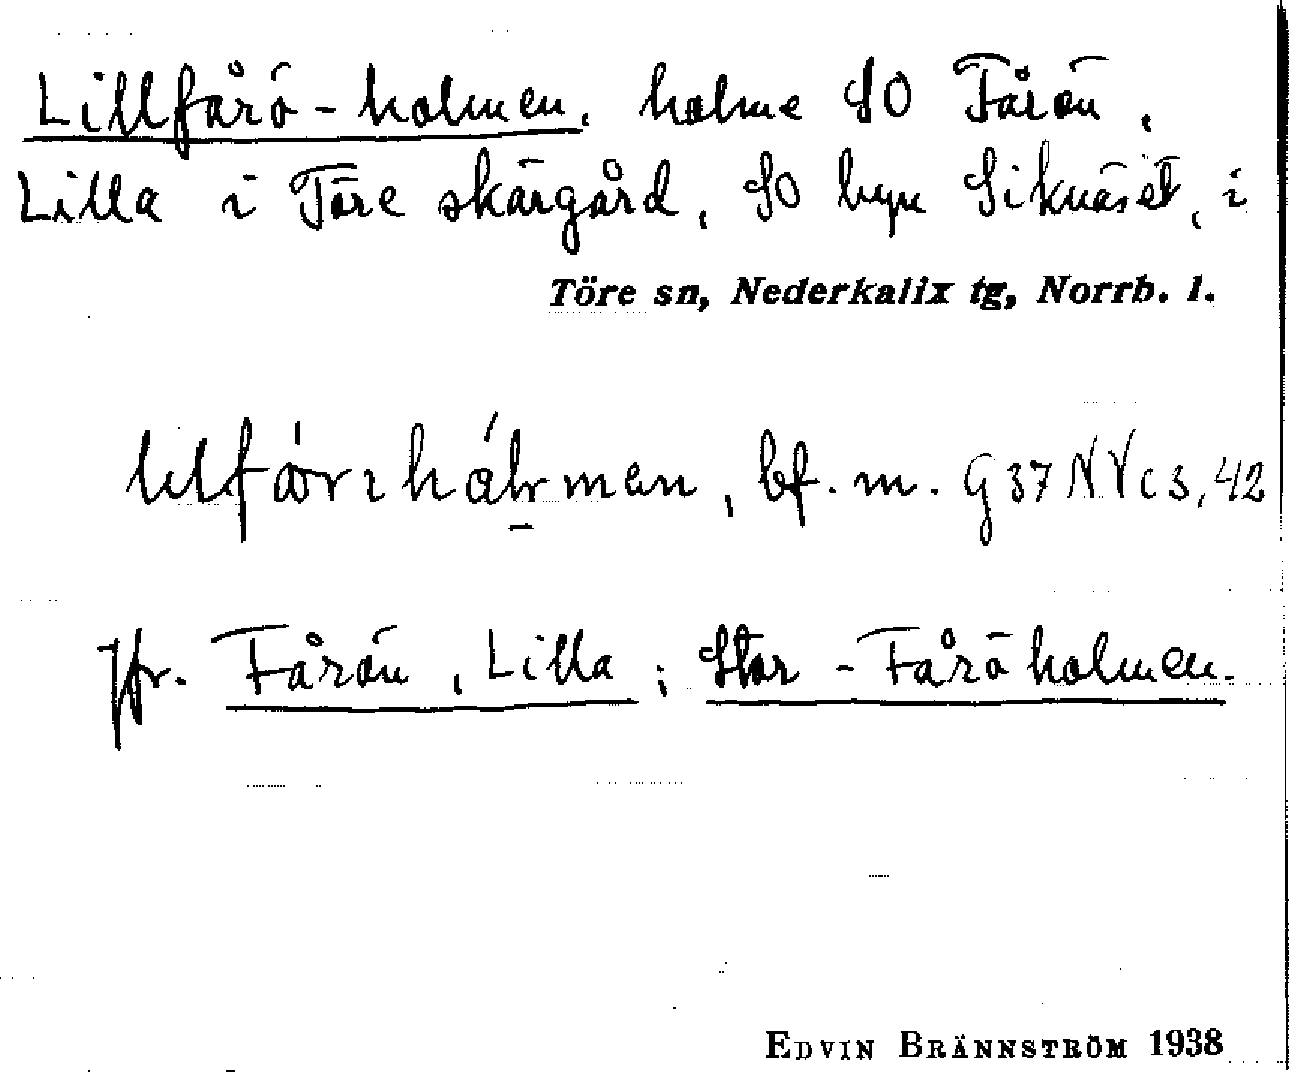 Lillfårö-holmen, holme SO Fårön,
Lilla i Töre skärgård, SO byn Siknäset, i
Töre sn, Nederkalix tg, Norrb. l.
bf. m. G37NVc3,42
Jfr. Fårön, Lilla; Stor-Fåröholmen.
EDVIN BRÄNNSTRÖM 1938